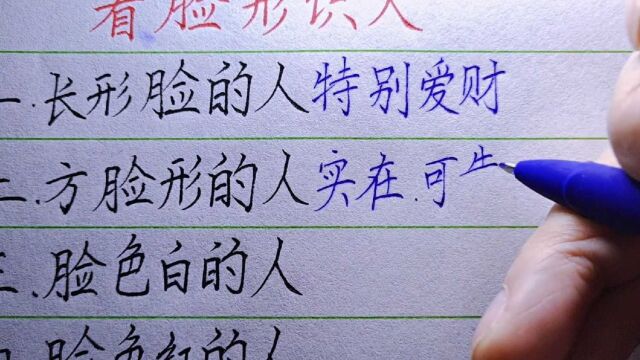 看脸形识人
一.长形脸的人特别爱财
二.方脸形的人实在.可
三.脸色白的人
四.脸色红的人